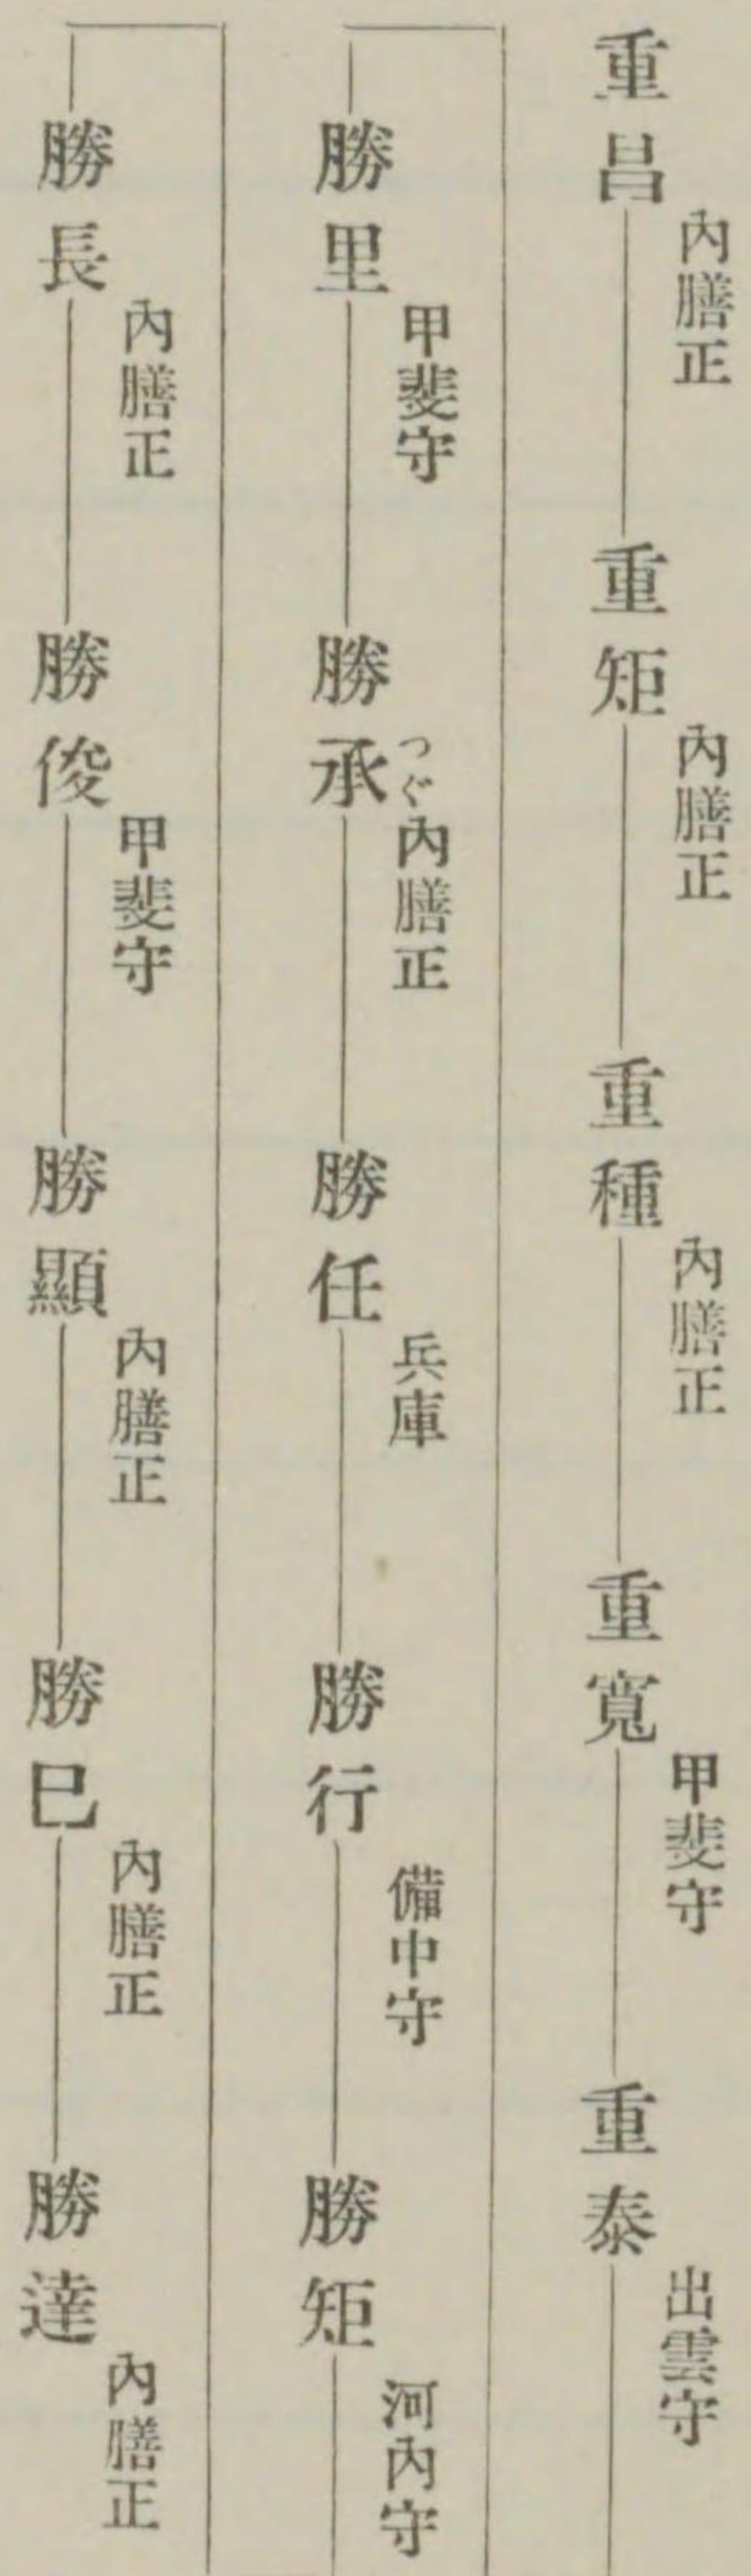 重昌 內膳正
重矩 內膳正
重種 內膳正
重寬 甲斐守
重泰 出雲守
勝里 甲斐守
勝承 つぐ 內膳正
勝任 兵庫
勝行 備中守
勝矩 河內守
勝長 內膳正
勝俊 甲斐守
勝顯 內膳正
勝巳 內膳正
勝達 內膳正